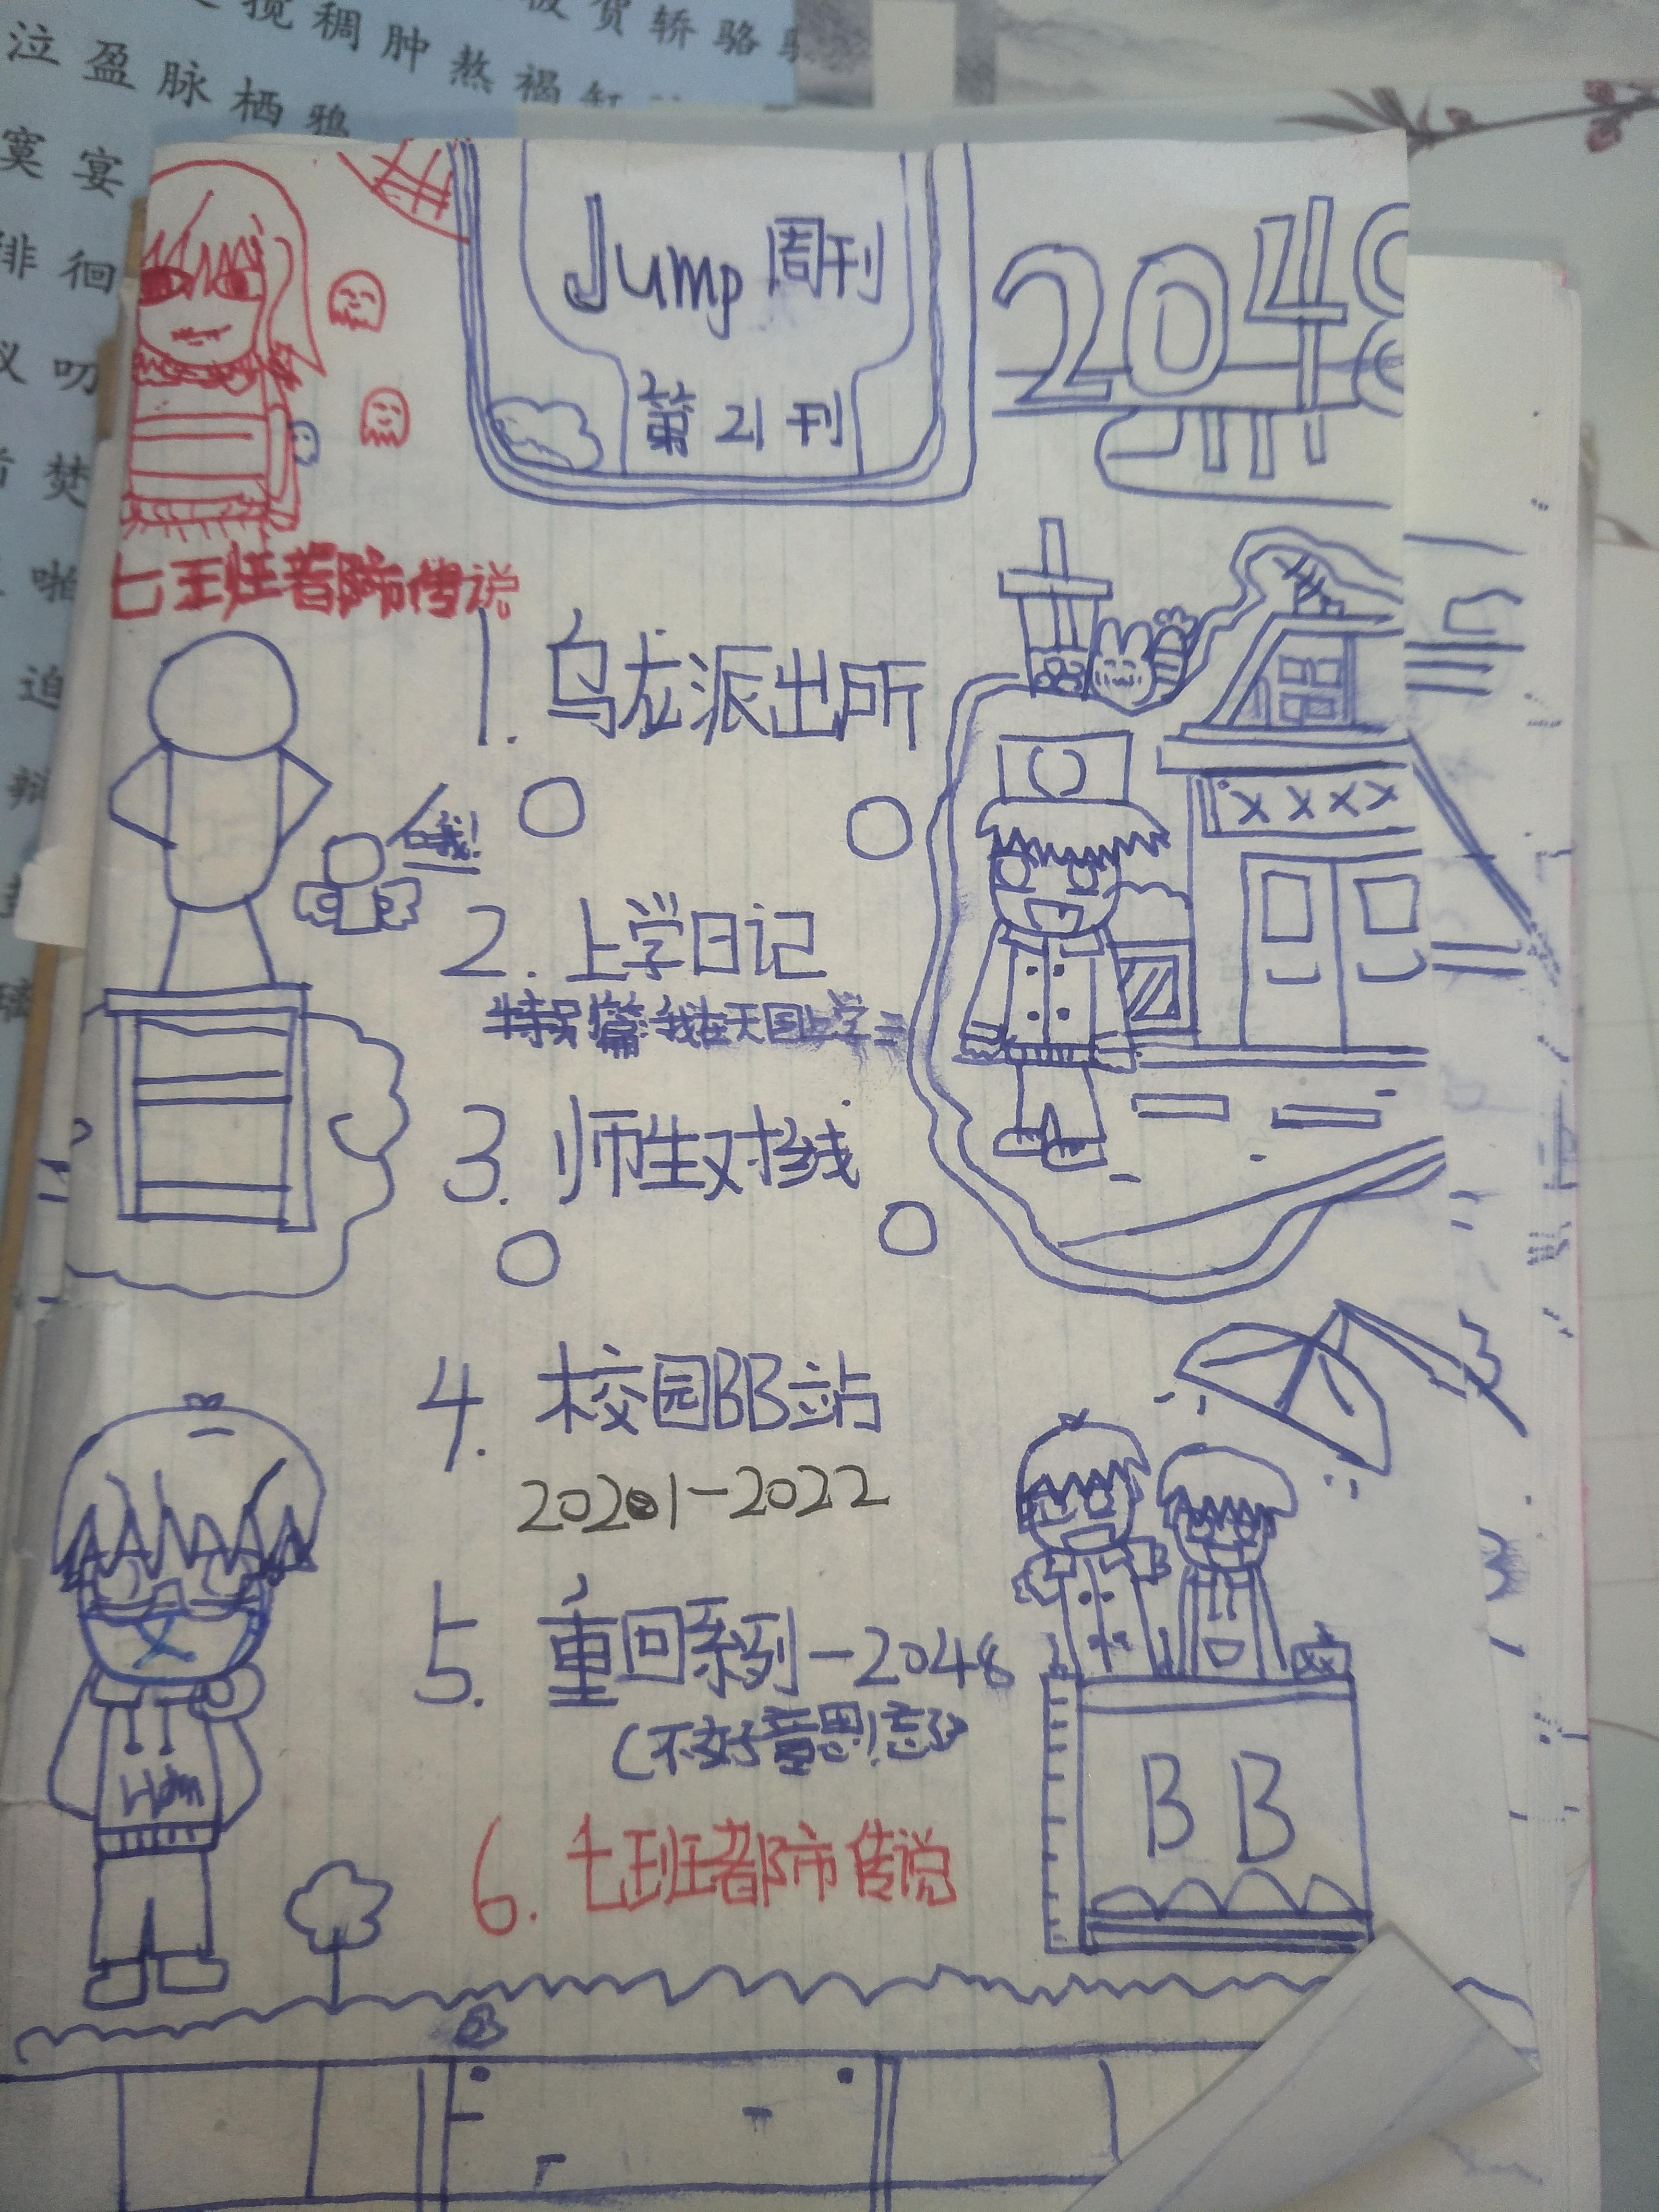 搅稠肿熬褐缸
贺轿骆
泣盈脉栖鸦
寞宴
徘徊
叨
焚
啪
迫
Jump周刊
第21刊
2048
七班都市传说
1.乌龙派出所
哦!
XXXX
2.上学日记
特别篇:我在天国上学
3.师生对线
4.校园BB站
2021-2022
5.重回系列-2048
(不好意思!忘了)
6.七班都市传说
BB